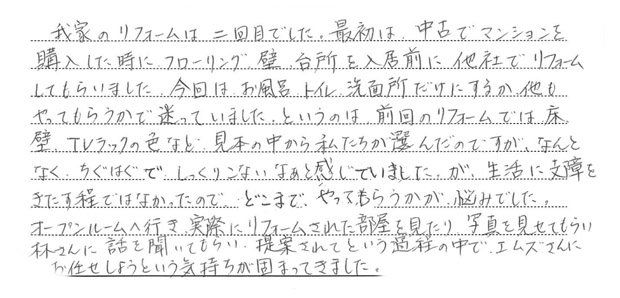 我家のリフォームは二回目でした。最初は、中古でマンションを
購入した時にフローリング、壁、台所を入居前に他社でリフォーム
してもらいました。今回はお風呂、トイレ、洗面所だけにするか、他も
やってもらうかで迷っていました。というのは、前回のリフォームでは、床、
壁、TVラックの色など、見本の中から私たちが選んだのですが、なんと
なく、ちぐはぐで、しっくりこないなぁと感じていましたが、生活に支障を
きたす程ではなかったので、どこまで、やってもらうかが、悩みでした。
オープンルームへ行き、実際にリフォームされた部屋を見たり、写真を見せてもらい
林さんに話を聞いてもらい、提案されてという過程の中で、エムズさんに
お任せしようという気持ちが固まってきました。